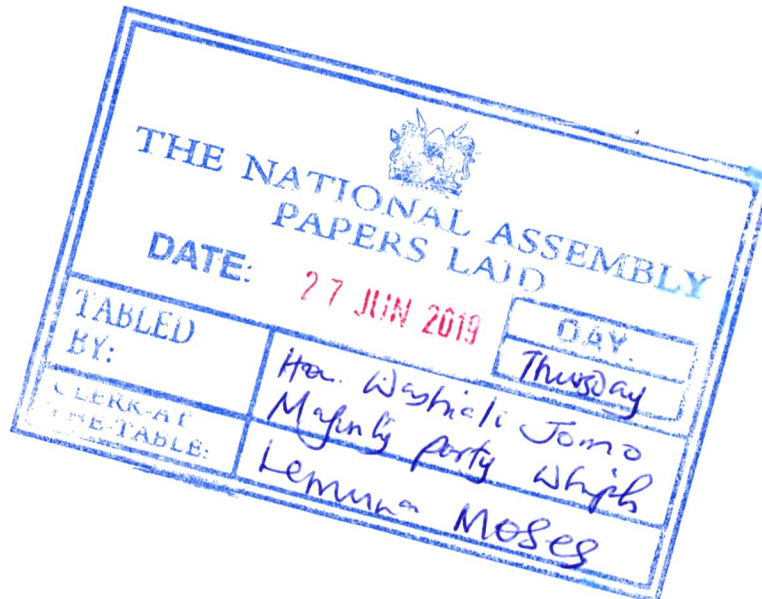 THE NATIONAL ASSEMBLY
PAPERS LAID
DATE: 27 JUN 2019
DAY.
Thursday
TABLED
BY:
Hon. Washiali Jomo
Majority party Whip
CLERK-AT
THE-TABLE:
Lemuna Moses